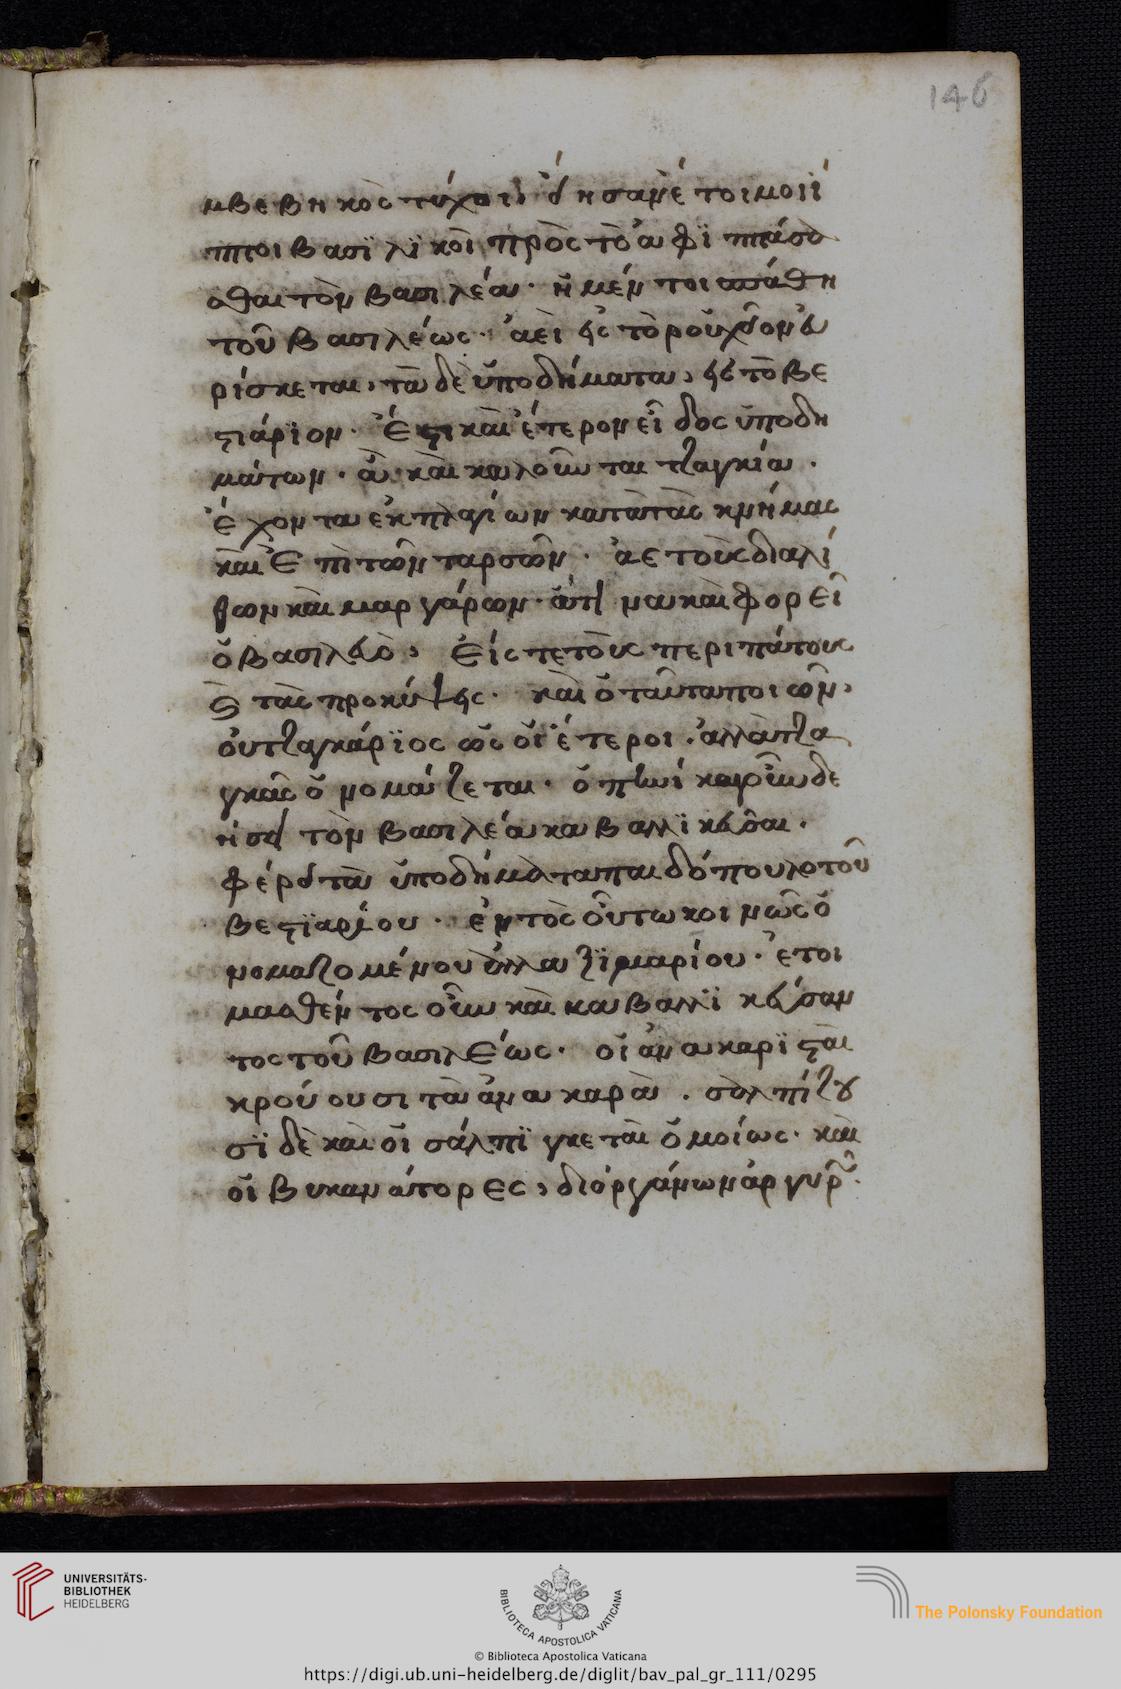 146
μβεβηκὸς τύχοι, εἴησαν ἕτοιμοι ἵ
πποι βασιλικοὶ πρὸς τὸ ἀφιππάσα
σθαι τὸν βασιλέα· ἡ μέντοι σπάθη
τοῦ βασιλέως· ἀεὶ εἰς τὸ ῥοῦχον εὑ
ρίσκεται, τὰ δὲ ὑποδήματα, εἰς τὸ βε
στιάριον· Ἔστι καὶ ἕτερον εἶδος ὑποδη
μάτων· ἃ καὶ καλοῦνται τζαγκία·
ἔχοντα ἐκ πλαγίων κατὰ τὰς κνήμας
καὶ ἐπὶ τῶν ταρσῶν· ἀετοὺς διὰ λί
θων καὶ μαργάρων· ἅτινα καὶ φορεῖ
ὁ βασιλεὺς, εἴς τε τοὺς περιπάτους
καὶ τὰς προκύψεις· καὶ ὁ ταῦτα ποιῶν,
οὐ τζαγκάριος ὡς οἱ ἕτεροι· ἀλλὰ τζα
γκᾶς ὀνομάζεται· ὁπηνίκα οὖν δε
ήσει τὸν βασιλέα καβαλλικεῦσαι·
φέρει τὰ ὑποδήματα παιδόπουλο τοῦ
βεστιαρίου· ἐντὸς οὕτω κοινῶς ὀ
νομαζομένου ἀλλαξιμαρίου· ἑτοι
μασθέντος οὖν καὶ καβαλλικεύσαν
τος τοῦ βασιλέως· οἱ ἀνακαρισταὶ
κρούουσι τὰ ἀνακαρὰ· σαλπίζου
σι δὲ καὶ οἱ σαλπιγκταὶ ὁμοίως· καὶ
οἱ βυκανάτορες, δι' ὀργάνων ἀργυρῶν·
UNIVERSITÄTS-
BIBLIOTHEK
HEIDELBERG
BIBLIOTECA APOSTOLICA VATICANA
The Polonsky Foundation
© Biblioteca Apostolica Vaticana
https://digi.ub.uni-heidelberg.de/diglit/bav_pal_gr_111/0295